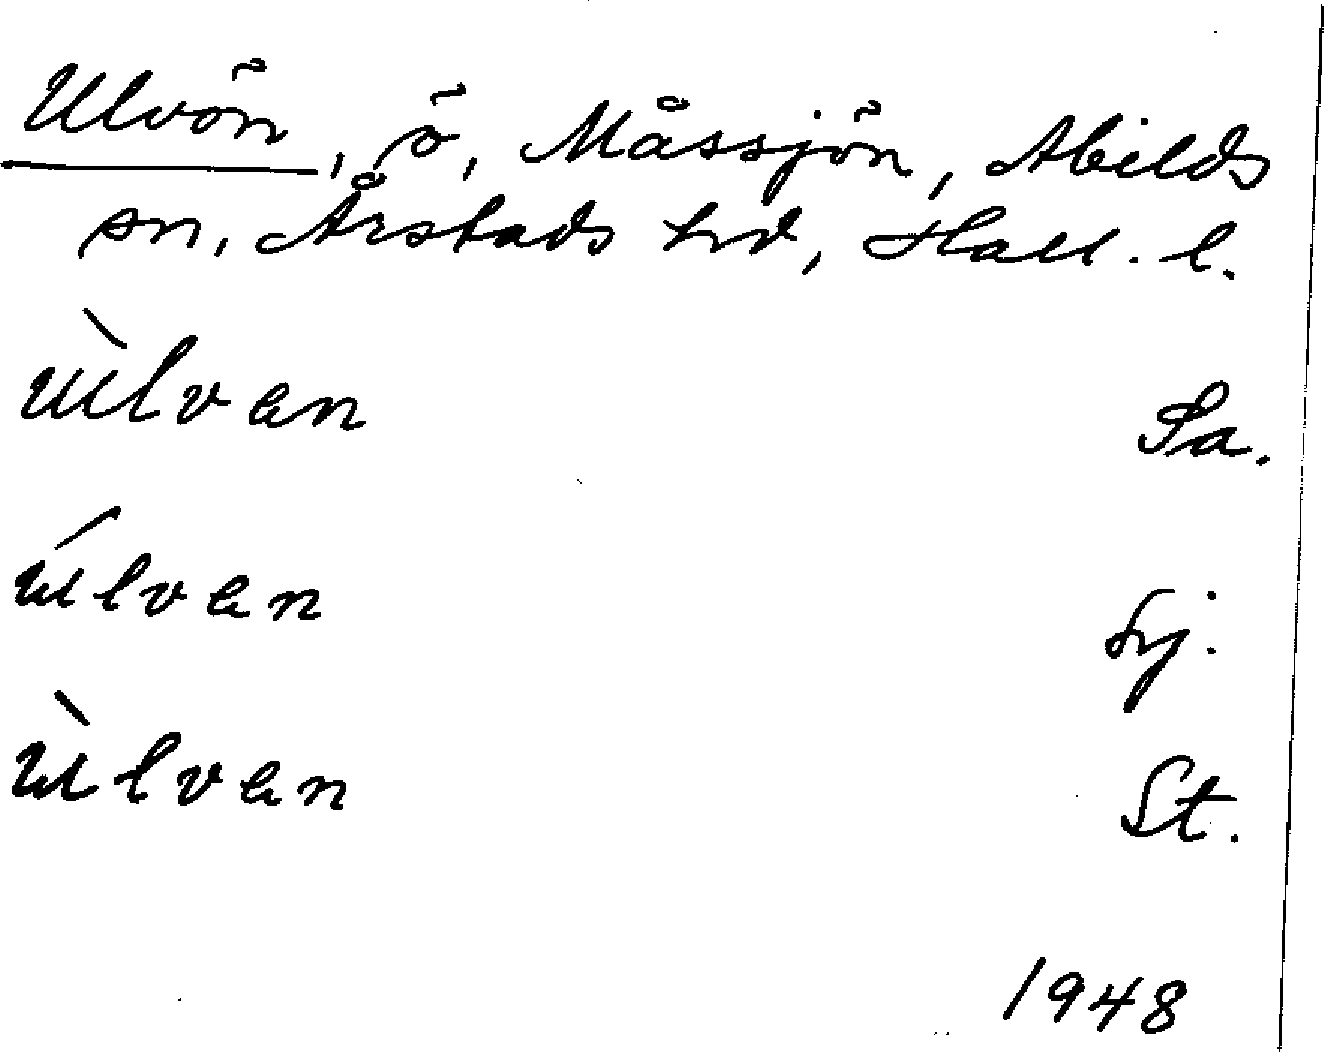 Ulvön, ö, Måssjön, Abilds
sn, Årstads hd, Hall. l.
ùlvan Sa.
úlvan Sj.
ùlvan St.
1948